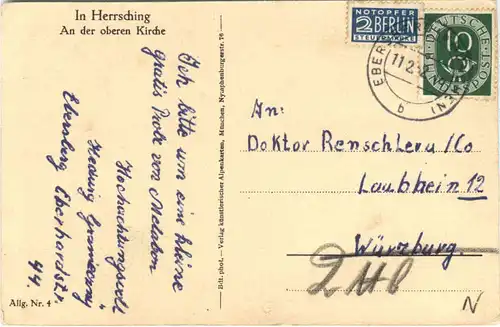 In Herrsching
An der oberen Kirche
Ich bitte um eine kleine
gratis Probe von Melabon
Hochachtungsvoll
Hedwig
Ebersberg Eberhardstr.
4/4.
Allg. Nr. 4
Bdt. phot. - Verlag künstlerischer Alpenkarten, München, Nymphenburgerstr. 76
NOTOPFER
2 BERLIN
STEUERMARKE
DEUTSCHE
BUNDESPOST
10
EBER
11.2.5
b
An:
Doktor Renschler u/Co
Laubhein 12
Würzburg.
2 H b
N